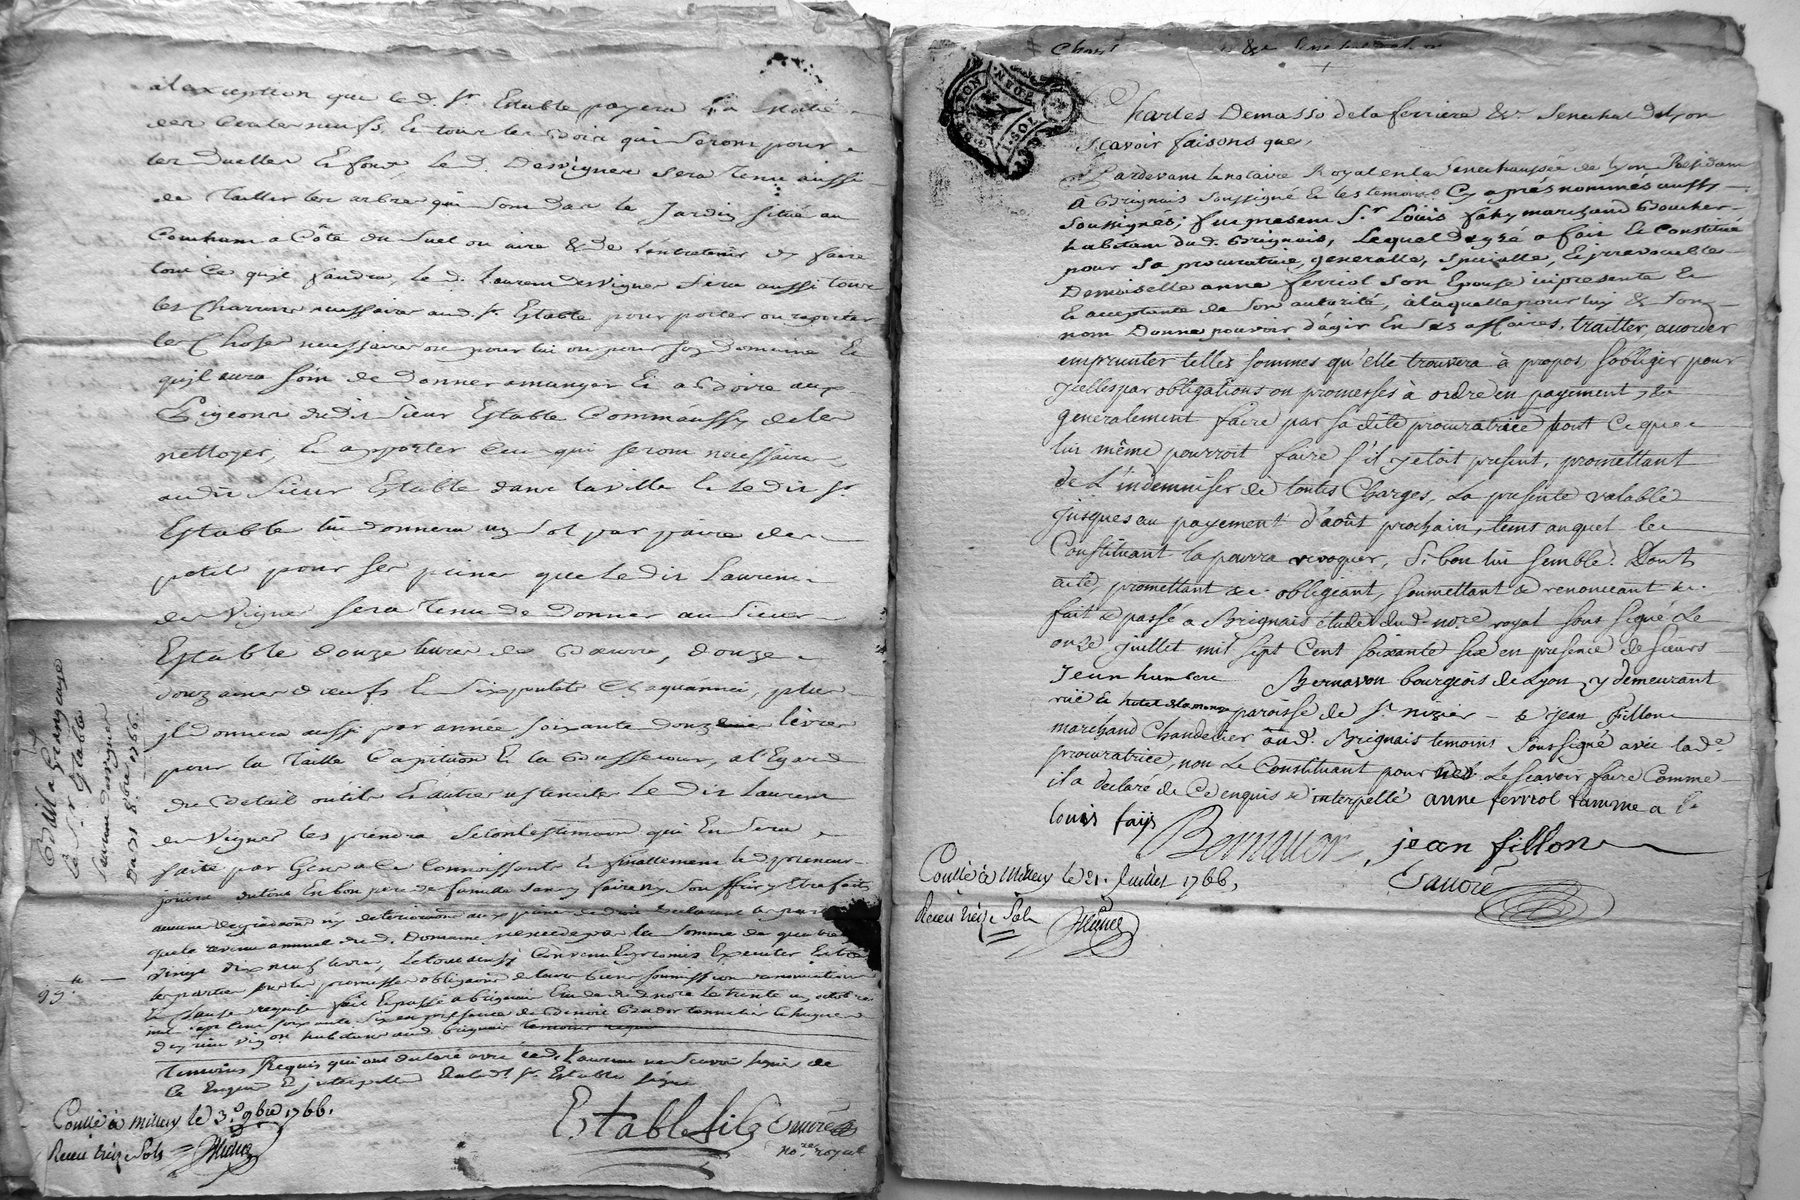 a l'exception que le d. Sr. Estable payera la moitié
des neufs Et tous les qui seront pour
les Et le d. Desvignes sera tenu aussi
de Tailler les arbres qui sont dans le Jardin situé au
Couchant a Côté du Suel ou aire & de l'entretenir Et faire
tout Ce qu'jl faudra, le d. Laurent desvignes fera aussi tous
les Charrois necessaires aud. Sr. Estable pour porter ou raporter
les Choses necessaires ou pour lui ou pour son Domaine Et
qu'jl aura soin de donner a manger Et a Boire aux
Pigeons dudit sieur Estable Comm'aussy de les
nettoyer, Et apporter Ceux qui seront necessaires
audit Sieur Estable dans la ville Et ledit Sr
Estable lui donnera un sol par paire de
petits pour ses peines que ledit Laurent
des Vignes sera tenu de donner au Sieur
Estable douze livres de Beurre, douze
douzaines d'oeufs Et six poulets Chaqu'année, plus
jl donnera aussi par année soixante douze livres
pour la Taille Capitation Et la a l'Egard
du Bétail outils Et autres ustenciles le dit Laurent
des Vignes les prendra selon l'estimation qui En sera
faite par Gens a Ce Connoissants Et finallement le d. preneur
jouira du tout En bon pere de famille sans y faire ny souffrir y Etre fait
aucune degradation ny deterioration aux peines de droit declarant les parties
que le revenu annuel dud. Domaine n'excede pas la somme de quatre
vingt dix neuf livres, Le tout ainsy Convenu Et promis Executer Entre
les parties par les promesses obligations de leurs biens soumissions renonciations
99.tt
Et Clauses requises fait Et passé a Brignais Etude dud. nore le trente un octobre
mil sept Cent soixante six en presence de Benoit tonnelier Et hugues
habitans aud. Brignais temoins requis
Temoins Requis qui ont declaré avec led. Laurent ne scavoir signer de
Ce Enquis Et jnterpellés Et led. Sr. Estable signé
Estable fils
nore. royal
Conllé à Millery le 3. 9bre 1766.
Receu treize Sols
Bail a Grangeage
Le Sr. Estable
Laurent desvignes
Du 31 8bre 1766.
Charles Demasso de la ferriere & Senechal de Lyon
Scavoir faisons que,
Pardevant le notaire Royal en la Senechaussée de Lyon Residant
a Brignais soussigné Et les temoins Cy après nommés aussy
soussignés; fut present Sr. Louis fahy marchand Boucher
habitant dud. Brignais, Lequel de gré a fait Et Constitué
pour sa procuratrice, generalle, specialle, Et irrevocable
Demoiselle anne ferriol son Epouse icy presente Et
Et acceptante de son autorité, a laquelle pour luy & son
nom Donne pouvoir d'agir En ses affaires, traitter, accorder
emprunter telles sommes qu'elle trouvera à propos, s'obliger pour
jcelles par obligations ou promesses à ordre en payement, &
generalement faire par sa dite procuratrice tout Ce que
lui même pourroit faire s'il y etoit present, promettant
de L'indemniser de toutes Charges, La presente valable
jusques au payement d'août prochain, tems auquel le
Constituant la pourra revoquer, si bon lui semble. Dont
acte, promettant &c. obligeant, soumettant & renonceant &c.
fait & passé a Brignais étude dud. nore royal sous signé Le
onze juillet mil sept Cent soixante six en presence de sieurs
Jean humbert Bernavon bourgeois de Lyon y demeurant
rue de hotel de la monoye paroisse de St. nizier & jean fillon
marchand Chandelier aud. Brignais temoins soussigné avec lad.
procuratrice, non Le Constituant pour ne Le scavoir faire Comme
il a declaré de Ce enquis & interpellé anne ferriol famme a
louis faijs
Bernavon jean fillon
Conllé à Millery le 21. Juillet 1766.
Receu treize Sols